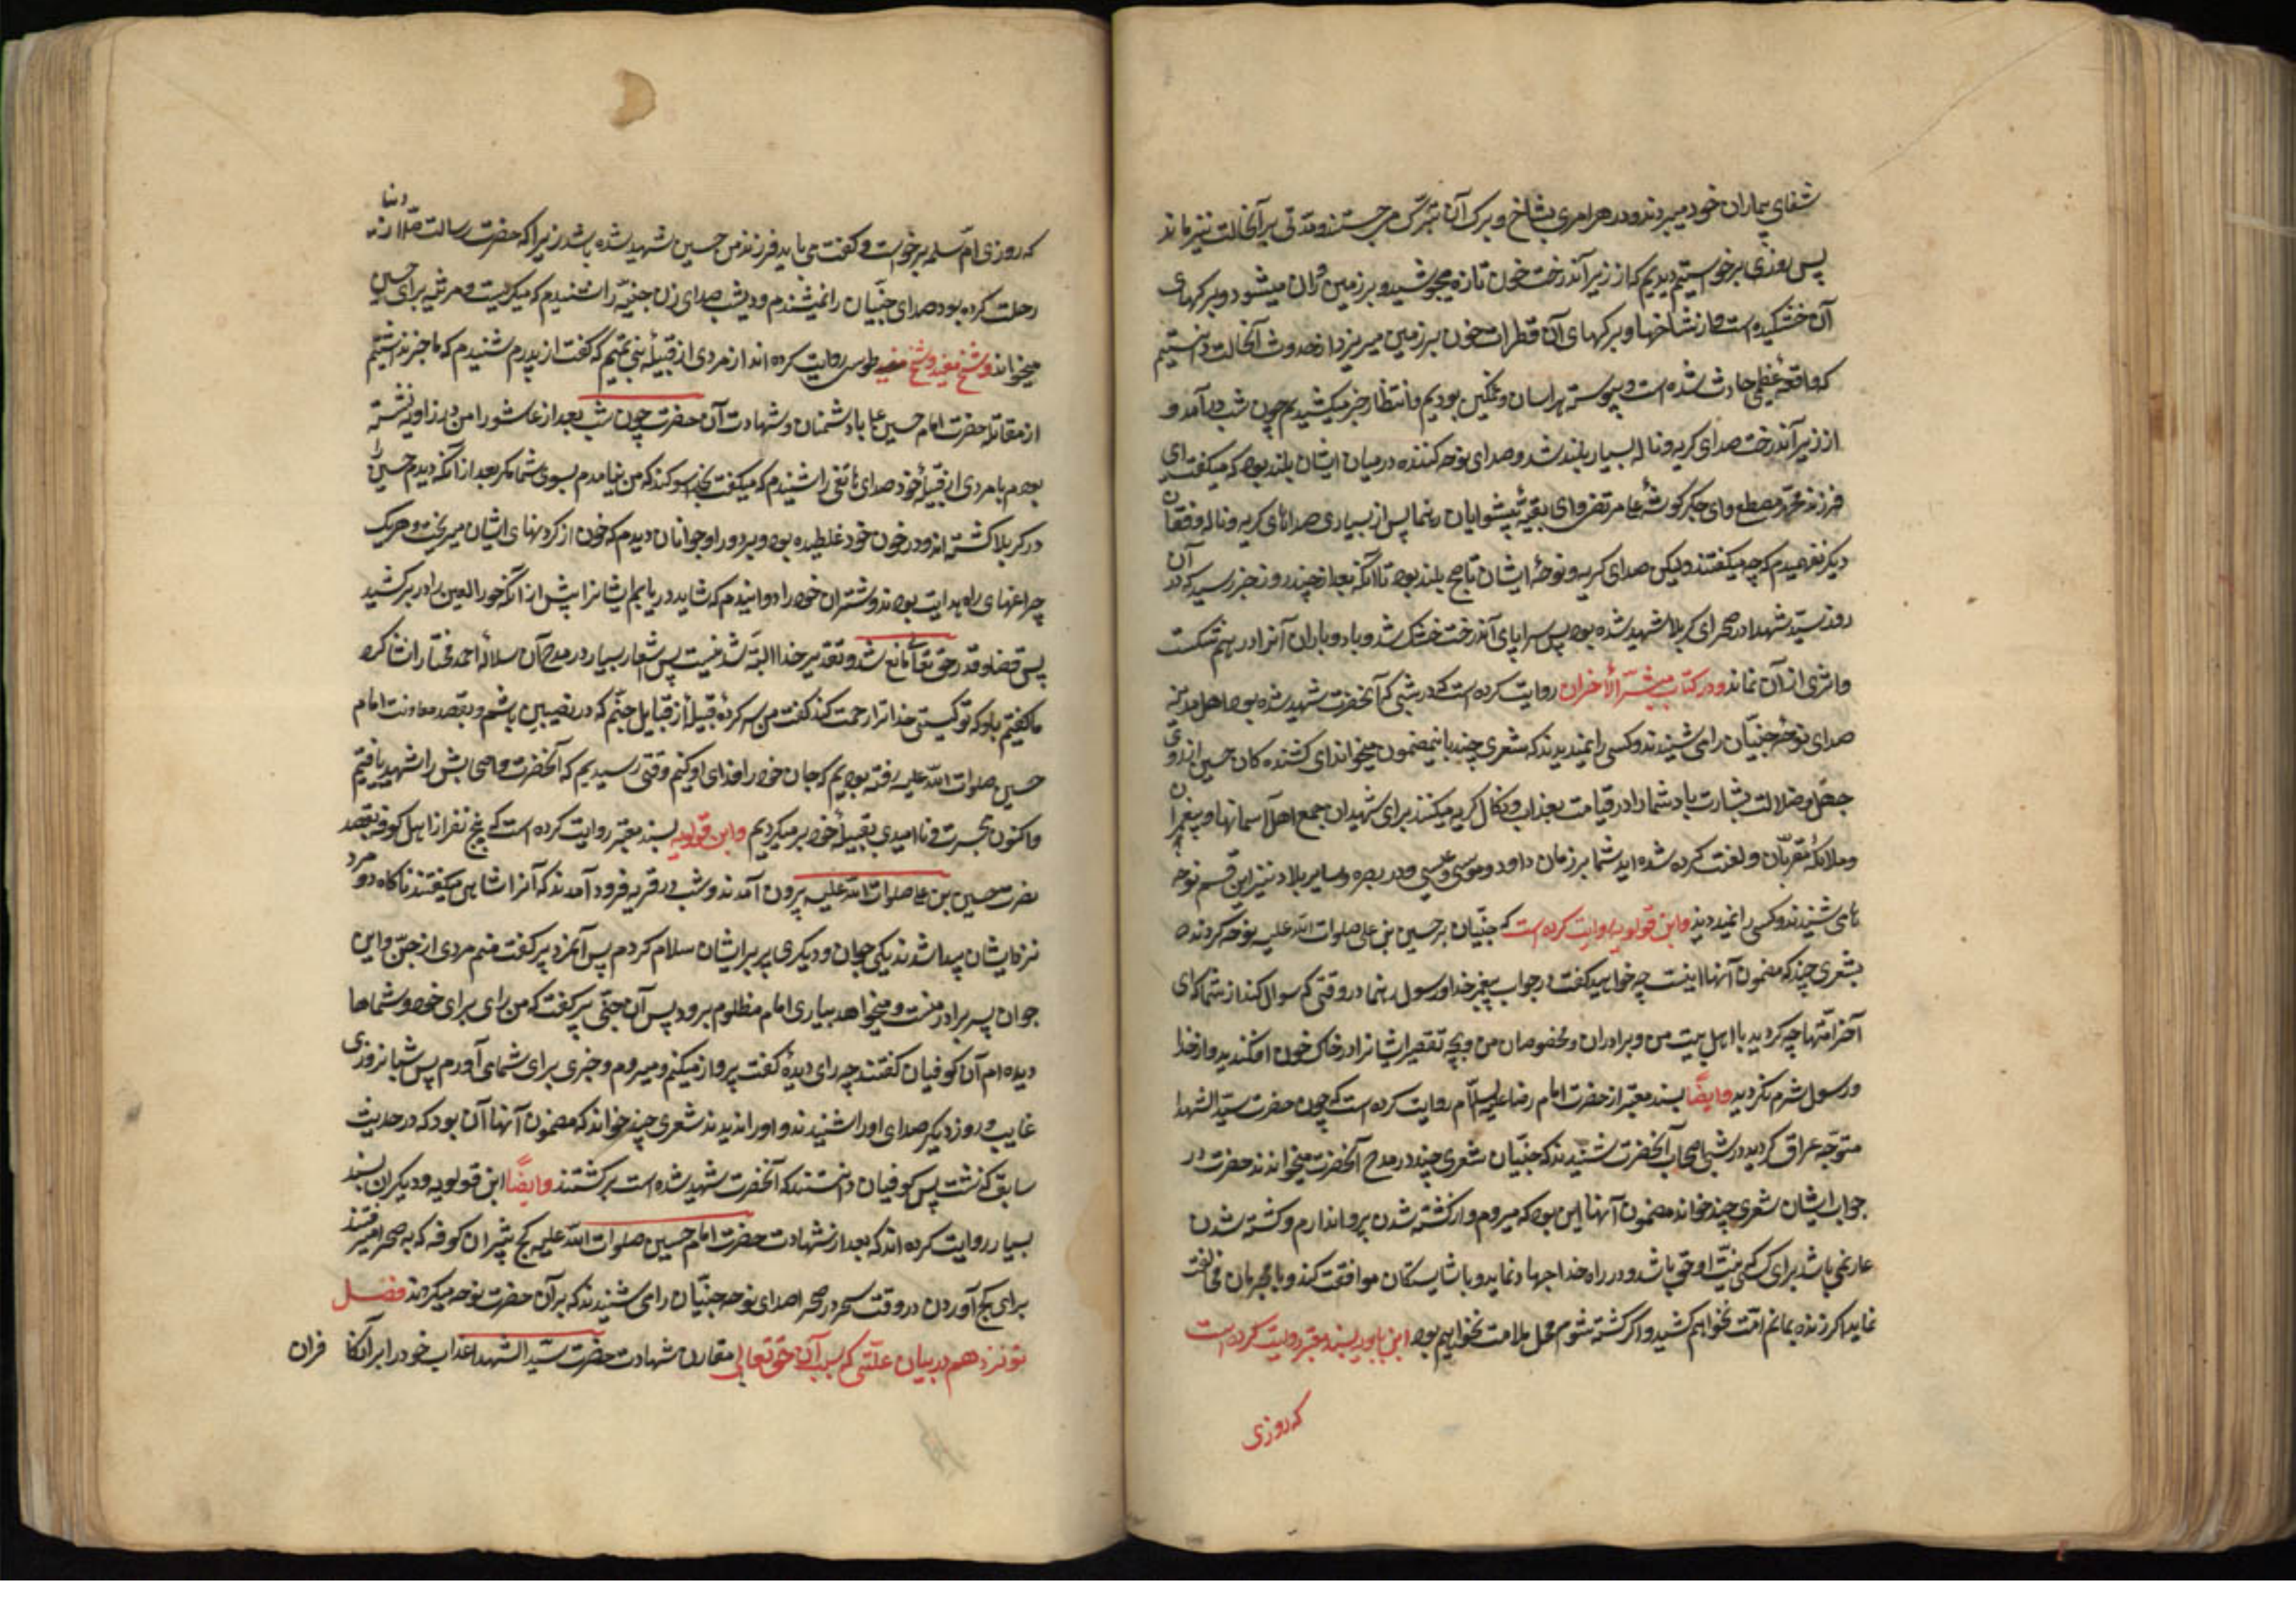 شفای بیماران خود میبردند و در هر امری بشاخ و برک آن تبرّک می جستند و مدتی بر آنحالت نیز ماند
پس روزی برخواستیم دیدیم که از زیر آندرخت خون تازه میجوشید و بر زمین روان میشود و برکهای
آن خشکیده است و از شاخها و برکهای آن قطرات خون بر زمین میریزد از حدوث آنحالت دانستیم
که واقعهٔ عظیمی حادث شده است و پیوسته هراسان و غمکین بودیم و انتظار خبر میکشیدیم چون شب درآمد و
از زیر آندرخت صدای کریه و ناله بسیار بلند شد و صدای نوحه کننده در میان ایشان بلند بود که میکفت ای
فرزند محمّد مصطفی و ای جکر کوشهٔ علی مرتضی و ای بقیّهٔ پیشوایان رهنما پس از بسیاری صداهای کریه و ناله و فغان
دیکر نفهمیدم که چه میکفتند ولیکن صدای کریه و نوحهٔ ایشان تا صبح بلند بود تا آنکه بعد از چند روز خبر رسید که در آن
روز سیّد شهدا در صحرای کربلا شهید شده بود پس سراپای آندرخت خشک شد و باد و باران آنرا در هم شکست
و اثری از آن نماند و در کتاب مثیر الاحزان روایت کرده است که در شبی که آنحضرت شهید شده بود اهل مدینه
صدای نوحهٔ جنیّان را می شنیدند و کسی را نمیدیدند که شعری چند باین مضمون میخواند ای کشنده کان حسین از روی
جهل و ضلالت بشارت باد شما را در قیامت بعذاب و نکال کریه میکنند برای شهیدان جمیع اهل آسمانها و پیغمبران
و ملائکهٔ مقربّان و لعنت کرده شده اید شما بر زبان داود و موسی و عیسی و در بصره و سایر بلاد نیز این قسم نوحه
ها می شنیدند و کسی را نمیدیدند و ابن قولویه روایت کرده است که جنّیان بر حسین بن علی صلوات الله علیه نوحه کردند
بشعری چند که مضمون آنها اینست چه خواهید کفت در جواب پیغمبر خدا و رسول رهنما در وقتی که سوال کند از شما که ای
آخر امّتها چه کردید با اهل بیت من و برادران و مخصوصان من و بچه تقصیر ایشانرا در خاک خون افکندید و از خدا
و رسول شرم نکردید و ایضًا بسند معتبر از حضرت امام رضا علیه السلام روایت کرده است که چون حضرت سیّد الشهدا
متوجّه عراق کردید در شبی اصحاب آنحضرت شنیدند که جنیّان شعری چند در مدح آنحضرت میخواندند حضرت در
جواب ایشان شعری چند خواند مضمون آنها این بود که میروم و از کشته شدن پروا ندارم و کشته شدن
عار نمی باشد برای کسی که نیّت او حق باشد و در راه خدا جهاد نماید و با شایستکان موافقت کند و با مجرمان مخالفت
نماید اکر زنده بمانم المت نخواهم کشید و اکر کشته شوم محل ملامت نخواهم بود ابن بابویه بسند معتبر روایت کرده است
که روزی
که روزی امّ سلمه برخواست و کفت می باید فرزند من حسین شهید شده باشد زیرا که حضرت رسالت صلّا از دنیا
رحلت کرده بود صدای جنّیان را نمیشنیدم و دیشب صدای زن جنیّه را شنیدم که میکریست و مرثیه برای حسین
میخواند و شیخ مفید و شیخ طوسی روایت کرده اند از مردی از قبیلهٔ بنی تمیم که کفت از پدرم شنیدم که ما خبر نداشتیم
از مقاتلهٔ حضرت امام حسین ع با دشمنان و شهادت آن حضرت چون شب بعد از عاشورا من در زاویه نشسته
بودم با مردی از قبیلهٔ خود صدای هاتفی را شنیدم که میکفت بخدا سوکند که من نیامدم بسوی شما مکر بعد از آنکه دیدم حسین را
در کربلا کشته اند و در خون خود غلطیده بود و بر دور او جوانان دیدم که خون از کردنهای ایشان میریخت و هر یک
چراغهای راه هدایت بودند و شتران خود را دوانیدم که شاید دریابم ایشانرا پیش از آنکه حورالعین را در بر کشید
پس قضا و قدر حق تعالی مانع شد و تقدیر خدا البتّه شدنیست پس اشعار بسیار در مدح آن سلالهٔ احمد مختار انشا کرد
ما کفتیم باو که تو کیستی خدا ترا رحمت کند کفت من سر کردهٔ قبیلهٔ از قبایل جنّم که در نصیبین باشم و بقصد معاونت امام
حسین صلوات الله علیه رفته بودیم که جان خود را فدای او کنیم وقتی رسیدیم که آنحضرت و اصحابش را شهید یافتیم
و اکنون بحسرت و ناامیدی بقبیلهٔ خود بر میکردیم و ابن قولویه بسند معتبر روایت کرده است که پنج نفر از اهل کوفه بقصد
نصرت حسین بن علی صلوات الله علیه بیرون آمدند و شب در قریهٔ فرود آمدند که آنرا شاهی میکفتند ناکاه دو مرد
نزد ایشان پیدا شدند یکی جوان و دیکری پیر بر ایشان سلام کردم پس آنمرد پیر کفت منم مردی از جنّ و این
جوان پسر برادر منست و میخواهد بیاری امام مظلوم برود پس آن جنّی پیر کفت که من رای برای خود و شماها
دیده ام آن کوفیان کفتند چه رای دیدهٔ کفت پرواز میکنم و میروم و خبری برای شما می آورم پس شبانروزی
غایب و روز دیکر صدای او را شنیدند و او را ندیدند شعری چند خواند که مضمون آنها آن بود که در حدیث
سابق کذشت پس کوفیان دانستند که آنحضرت شهید شده است برکشتند و ایضًا ابن قولویه و دیکران بسند
بسیار روایت کرده اند که بعد از شهادت حضرت امام حسین صلوات الله علیه کچ پزان کوفه که به صحرا میرفتند
برای کچ آوردن در وقت سحر در صحرا صدای نوحه جنّیان را می شنیدند که بر آن حضرت نوحه میکردند فصل
نوزدهم در بیان علّتی که بسبب آن حق تعالی مقارن شهادت حضرت سیّد الشهدا عذاب خود را بر آن کافران